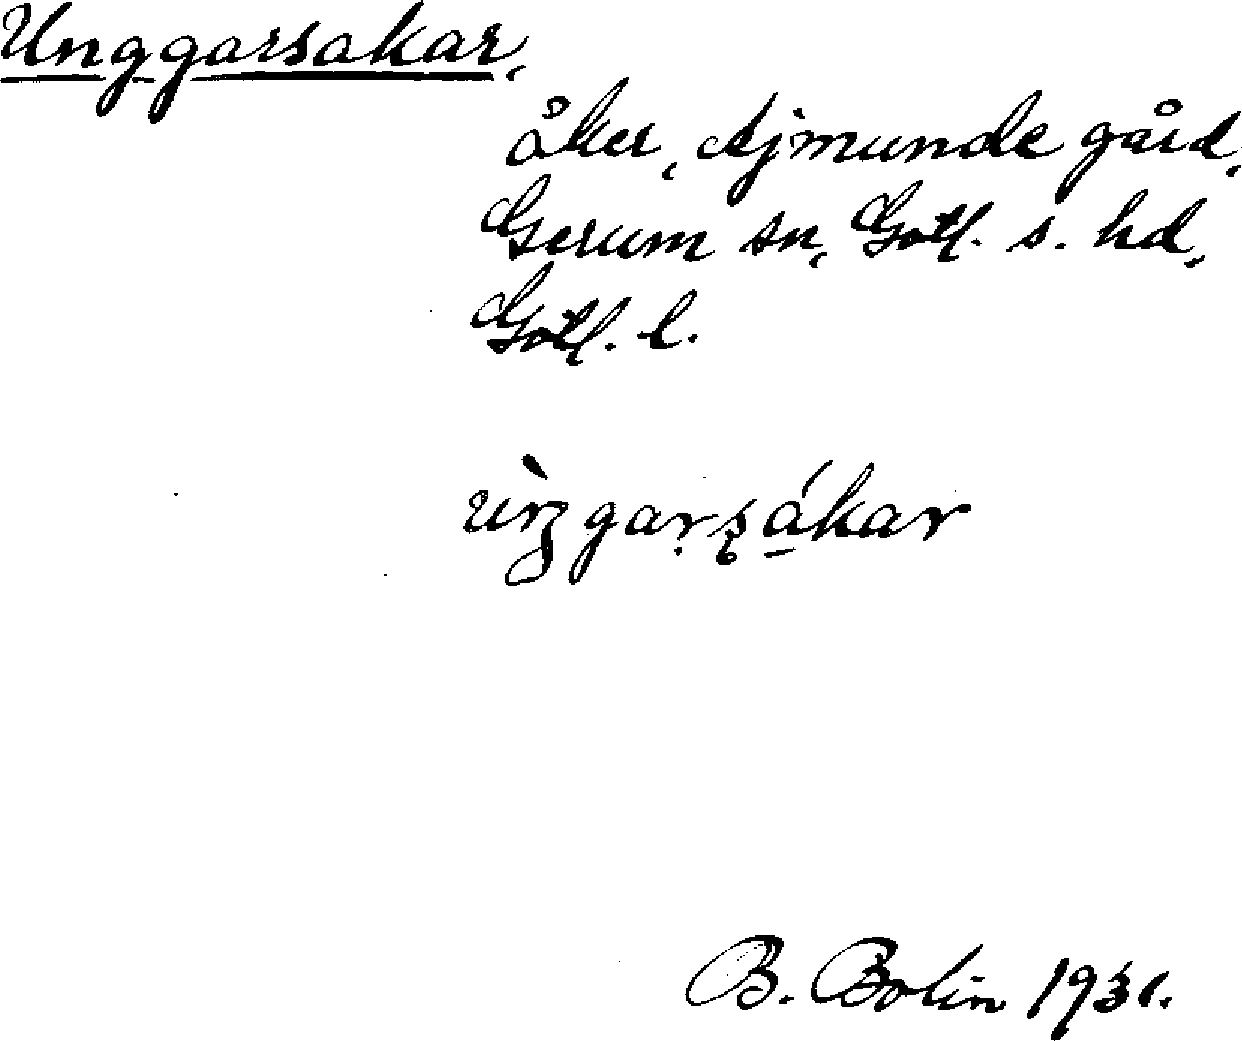 Unggarsakar,
åker, Ajmunde gård,
Gerum sn, Gotl. s. hd,
Gotl. l.
ùŋgarṣákar
B. Bolin 1931.